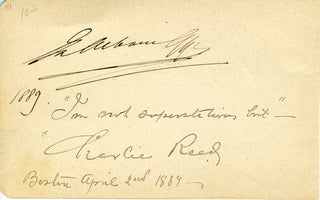 10-
1889. "I'm not superstitious but"-
"Charlie Reed
Boston April 2nd 1889-